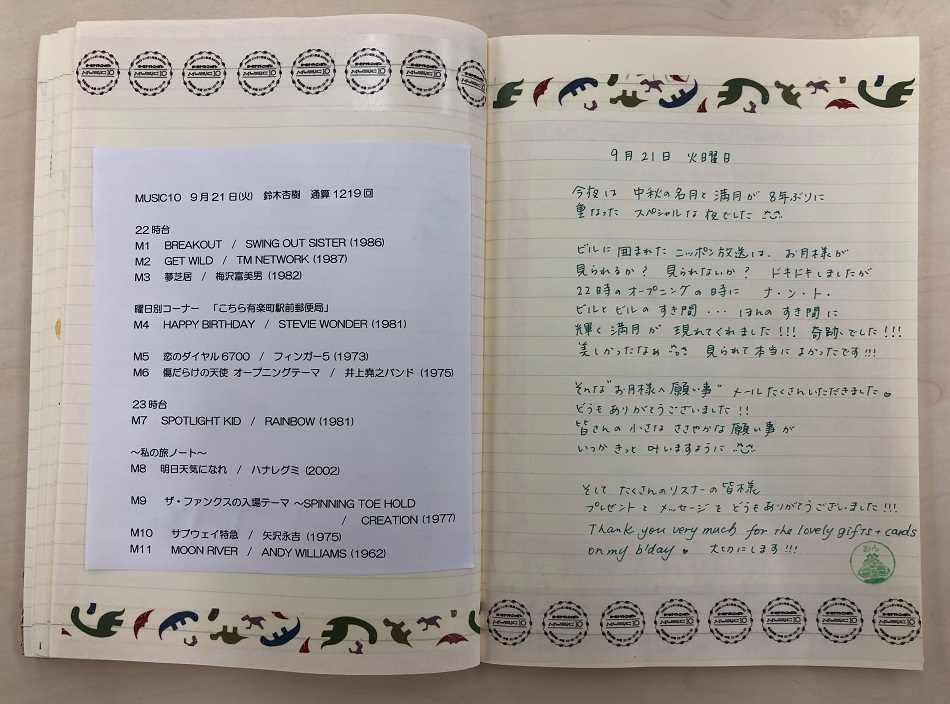 MUSIC10
MUSIC10
MUSIC10
MUSIC10
MUSIC10
MUSIC10
MUSIC10
MUSIC10
MUSIC10 9月21日(火) 鈴木杏樹 通算1219回
22時台
M1 BREAKOUT / SWING OUT SISTER (1986)
M2 GET WILD / TM NETWORK (1987)
M3 夢芝居 / 梅沢富美男 (1982)
曜日別コーナー 「こちら有楽町駅前郵便局」
M4 HAPPY BIRTHDAY / STEVIE WONDER (1981)
M5 恋のダイヤル6700 / フィンガー5 (1973)
M6 傷だらけの天使 オープニングテーマ / 井上堯之バンド (1975)
23時台
M7 SPOTLIGHT KID / RAINBOW (1981)
～私の旅ノート～
M8 明日天気になれ / ハナレグミ (2002)
M9 ザ・ファンクスの入場テーマ ～SPINNING TOE HOLD
/ CREATION (1977)
M10 サブウェイ特急 / 矢沢永吉 (1975)
M11 MOON RIVER / ANDY WILLIAMS (1962)
9月21日 火曜日
今夜は 中秋の名月と満月が 8年ぶりに
重なった スペシャルな夜でした
ビルに囲まれた ニッポン放送は、お月様が
見られるか? 見られないか? ドキドキしましたが
22時のオープニングの時に ナ・ン・ト・
ビルとビルの すき間・・・ ほんの すき間に
輝く満月が 現れてくれました!!! 奇跡、でした!!!
美しかったなぁ 見られて本当に よかったです!!!
そんな"お月様へ願い事" メールたくさんいただきました
どうも ありがとうございました!!
皆さんの 小さな ささやかな願い事が
いつか きっと 叶いますように
そして たくさんのリスナーの皆様
プレゼントと メッセージを どうもありがとうございました!!!
Thank you very much for the lovely gifts + cards
on my b'day 大切にします!!!
あん
MUSIC10
MUSIC10
MUSIC10
MUSIC10
MUSIC10
MUSIC10
MUSIC10
MUSIC10